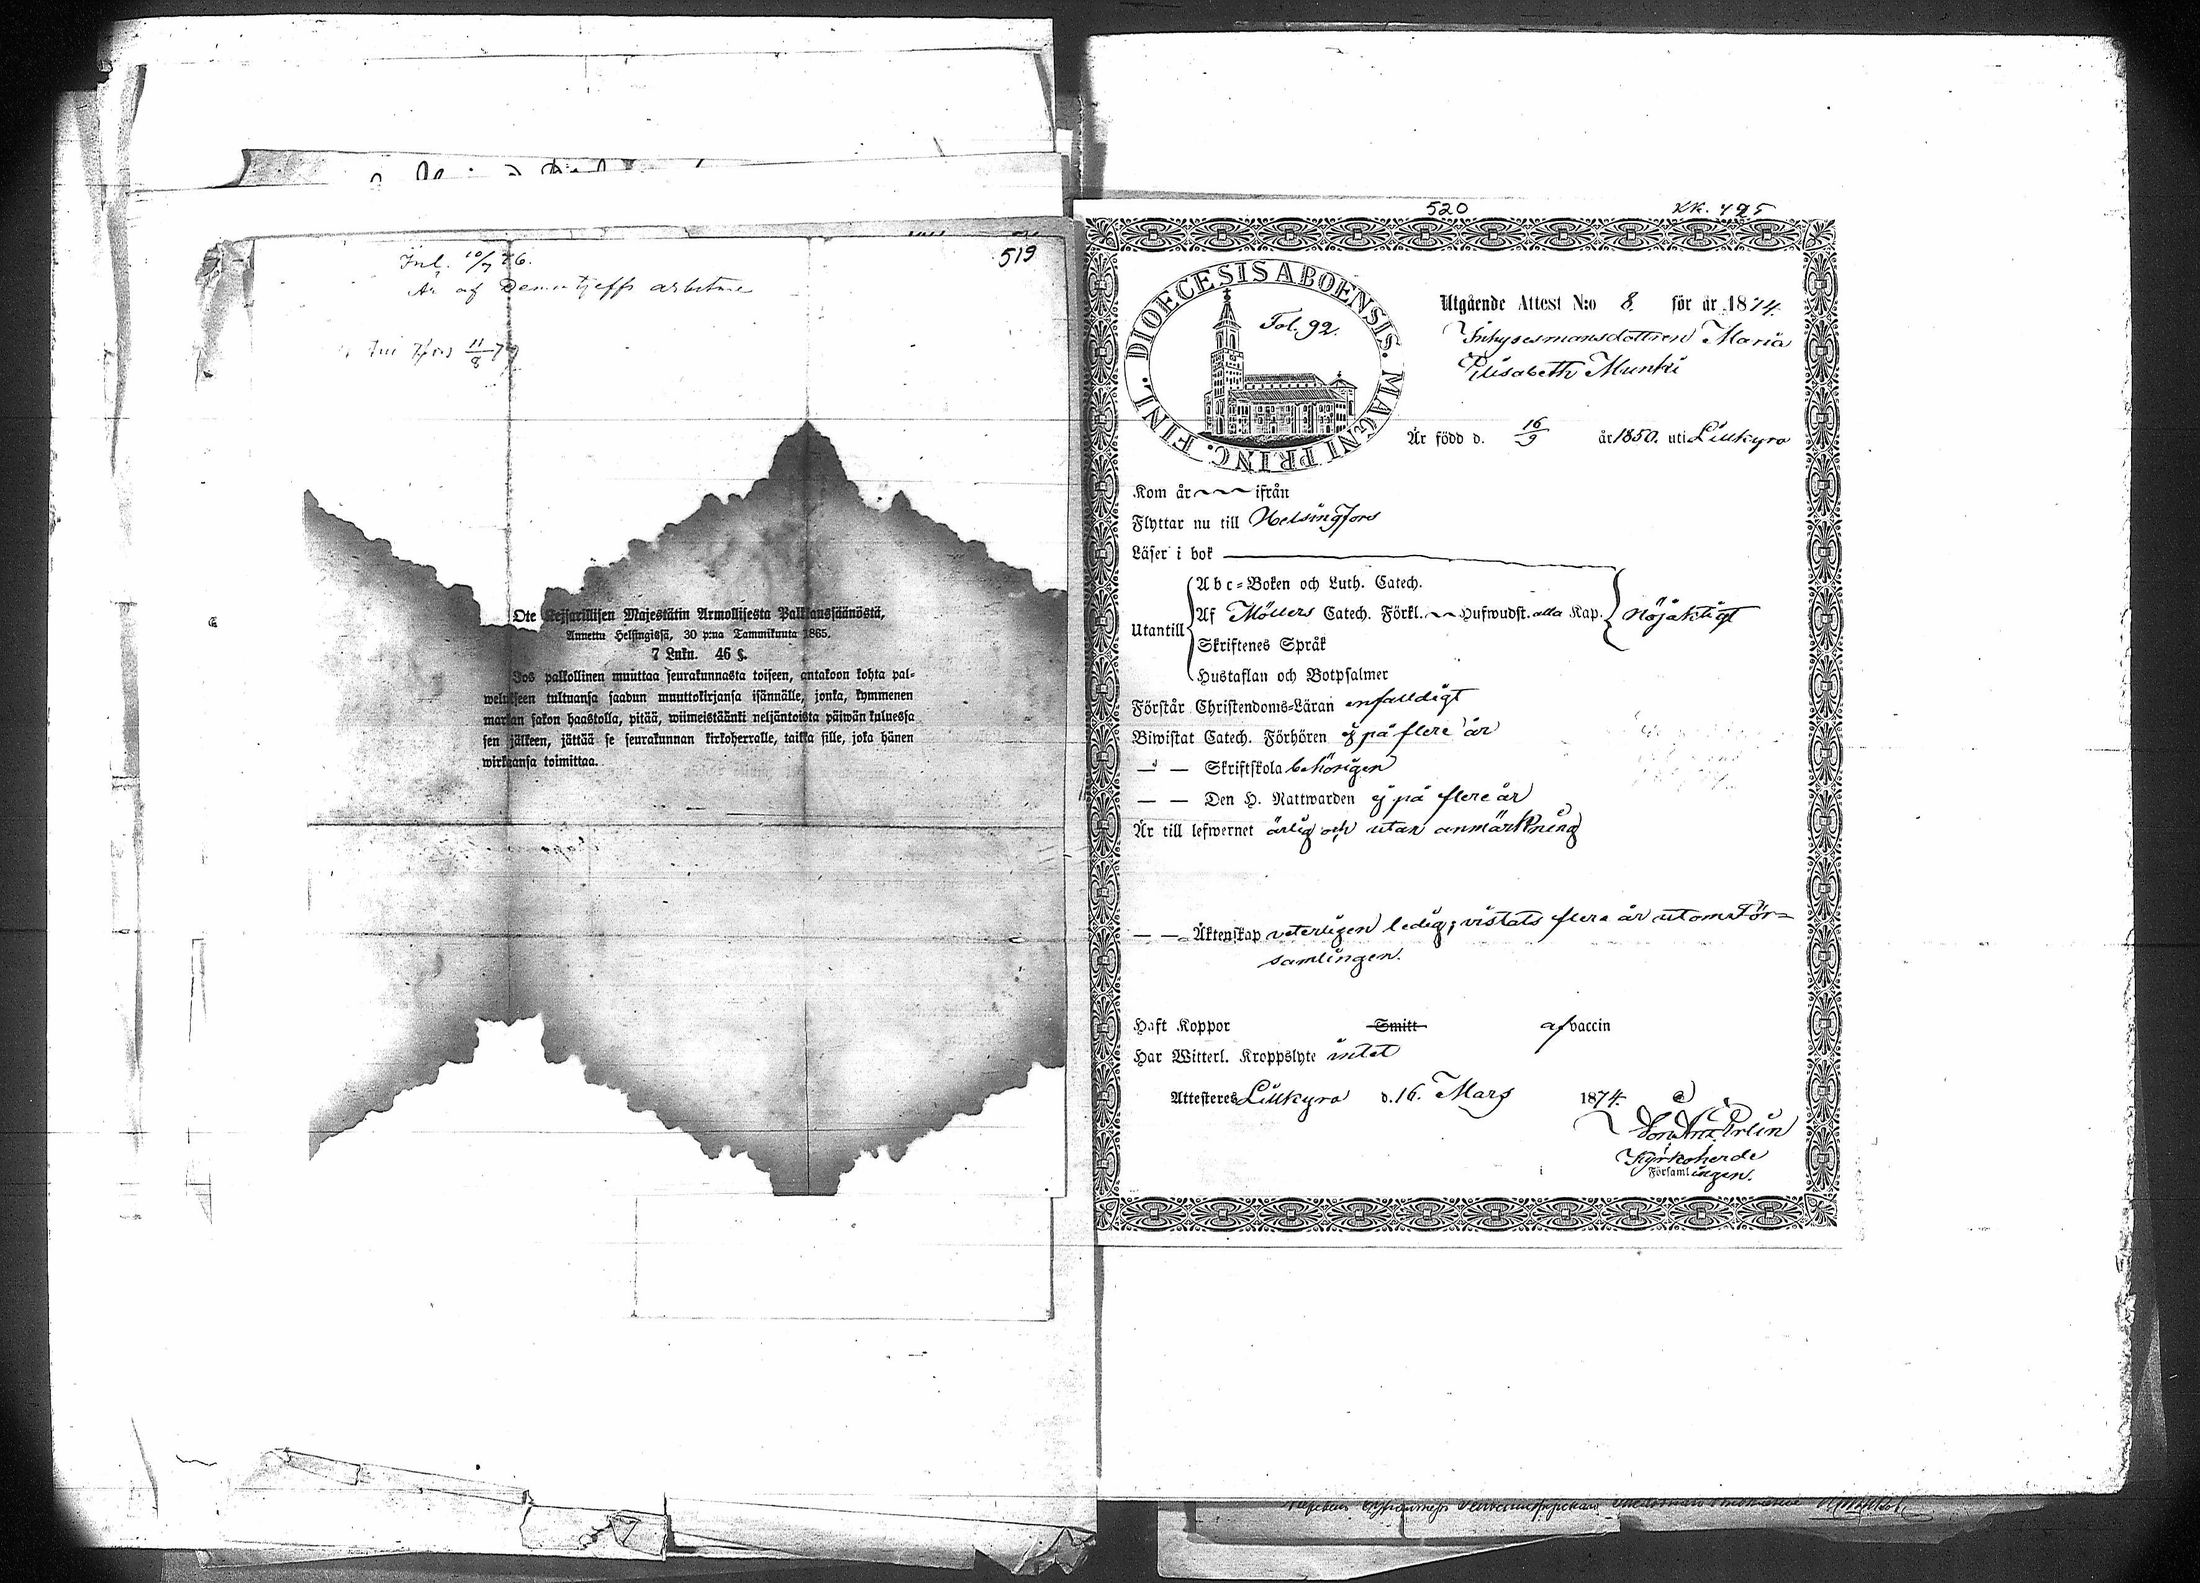 519
Inl. 10/7 76.
Är af Dementjeffs arbetare
11/8 79
Ote Keisarillisen Majestätin Armollisesta Palkkaussäännöstä,
Annettu Helsingissä, 30 p:nä Tammikuuta 1865.
7 Luku. 46 §.
Jos palkollinen muuttaa seurakunnasta toiseen, antakoon kohta pal-
welukseen tultuansa saadun muuttokirjansa isännälle, jonka, kymmenen
markan sakon haastolla, pitää, wiimeistäänki neljäntoista päiwän kuluessa
sen jälkeen, jättää se seurakunnan kirkoherralle, taikka sille, joka hänen
wirkaansa toimittaa.
520
KK. 495
DIOECESIS ABOENSIS. MAGNI PRINC. FINL.
Fol. 92.
Utgående Attest N:o 8. för år 1874.
Inhysesmansdottren Maria
Elisabeth Munki
Är född d. 16/9 år 1850. uti Lillkyro
Kom år ifrån
Flyttar nu till Helsingfors
Läser i bok
Utantill
Abc-Boken och Luth. Catech.
Af Möllers Catech. Förkl. Hufwudst. alla Kap. Nöjaktigt
Skriftenes Språk
Hustaflan och Botpsalmer
Förstår Christendoms-Läran enfaldigt
Biwistat Catech. Förhören ej på flere år
— — Skriftskola behörigen
— — Den H. Nattwarden ej på flere år
Är till lefwernet ärlig och utan anmärkning
— — Äktenskap veterligen ledig; vistats flera år utom För-
samlingen.
Haft Koppor Smitt af vaccin
Har Witterl. Kroppslyte intet
Attesteres Lillkyro d. 16. Mars 1874.
Kyrkoherde
Församlingen.